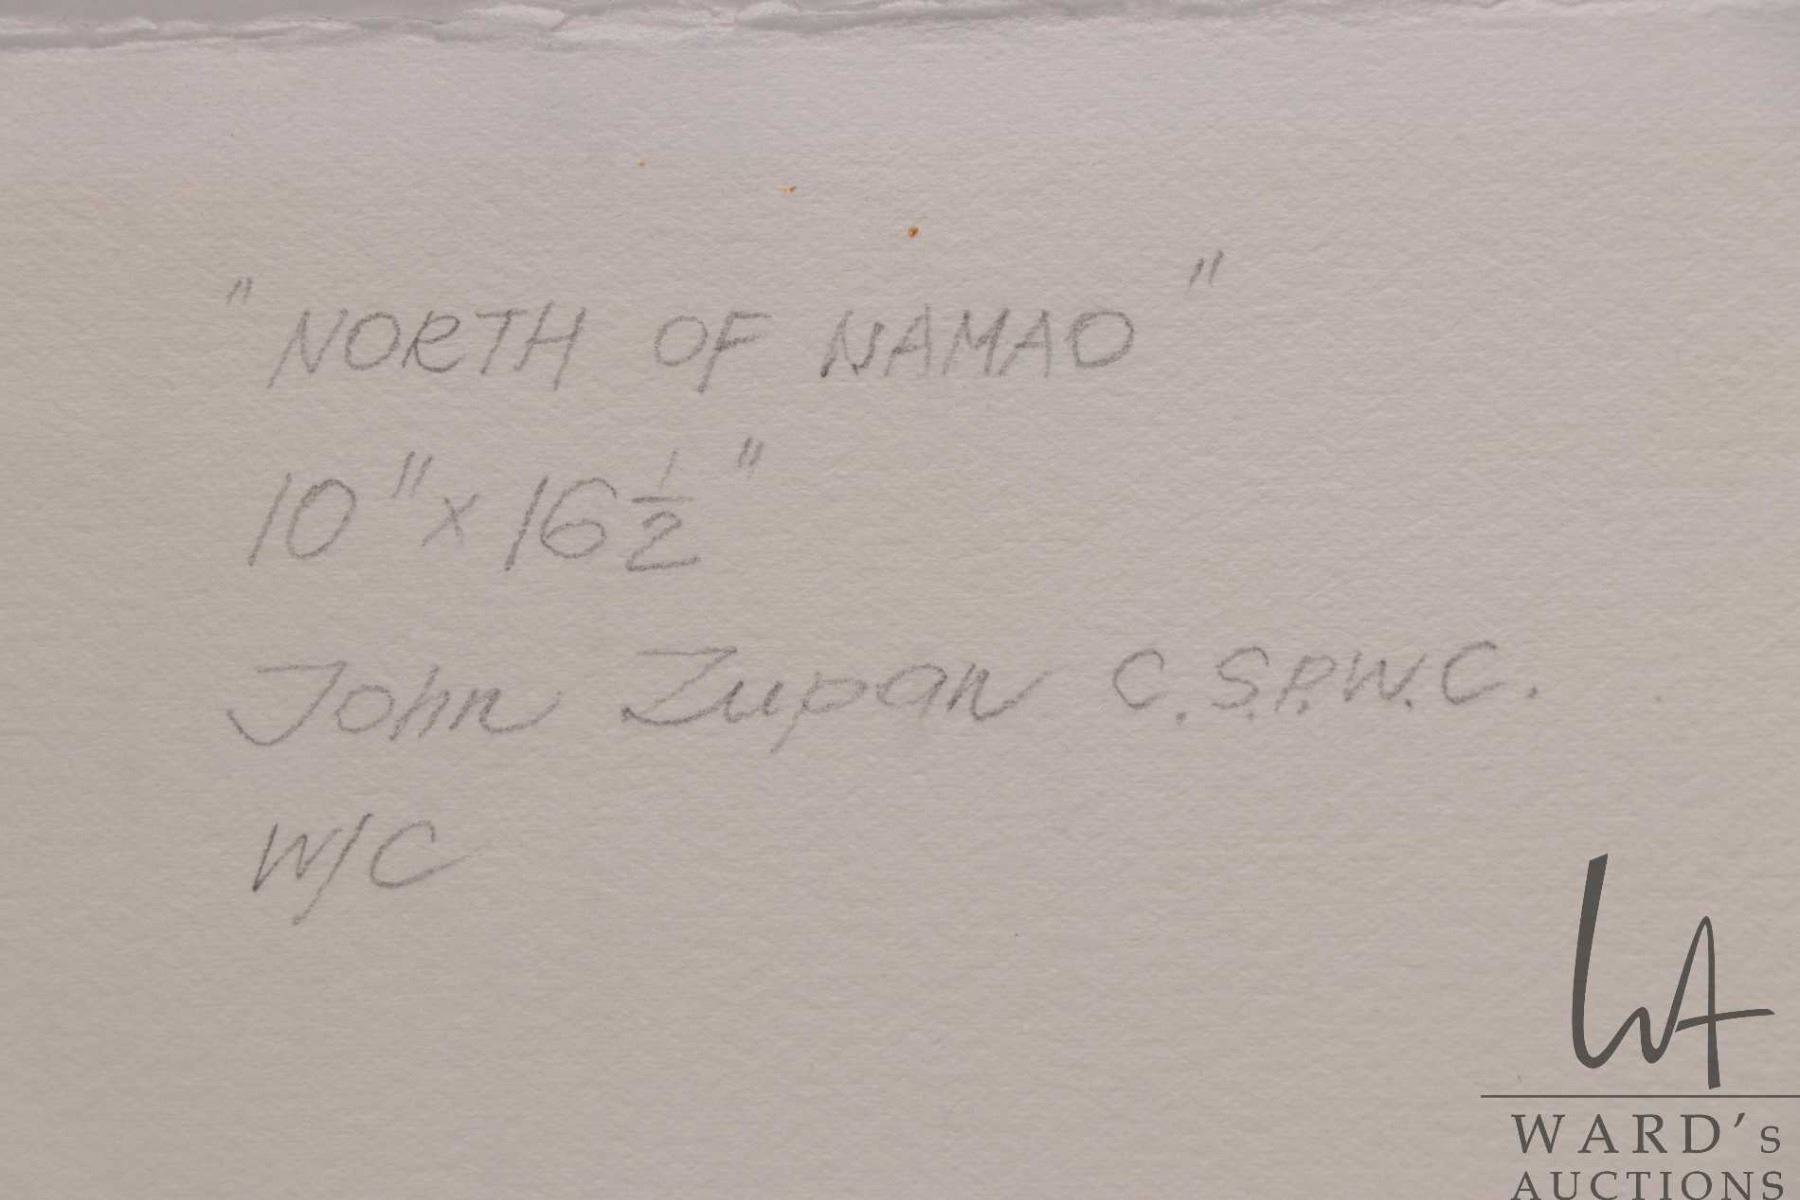 "NORTH OF NAMAO"
10" x 16 1/2"
John Zupan C.S.P.W.C.
W/C
WA
WARD's
AUCTIONS